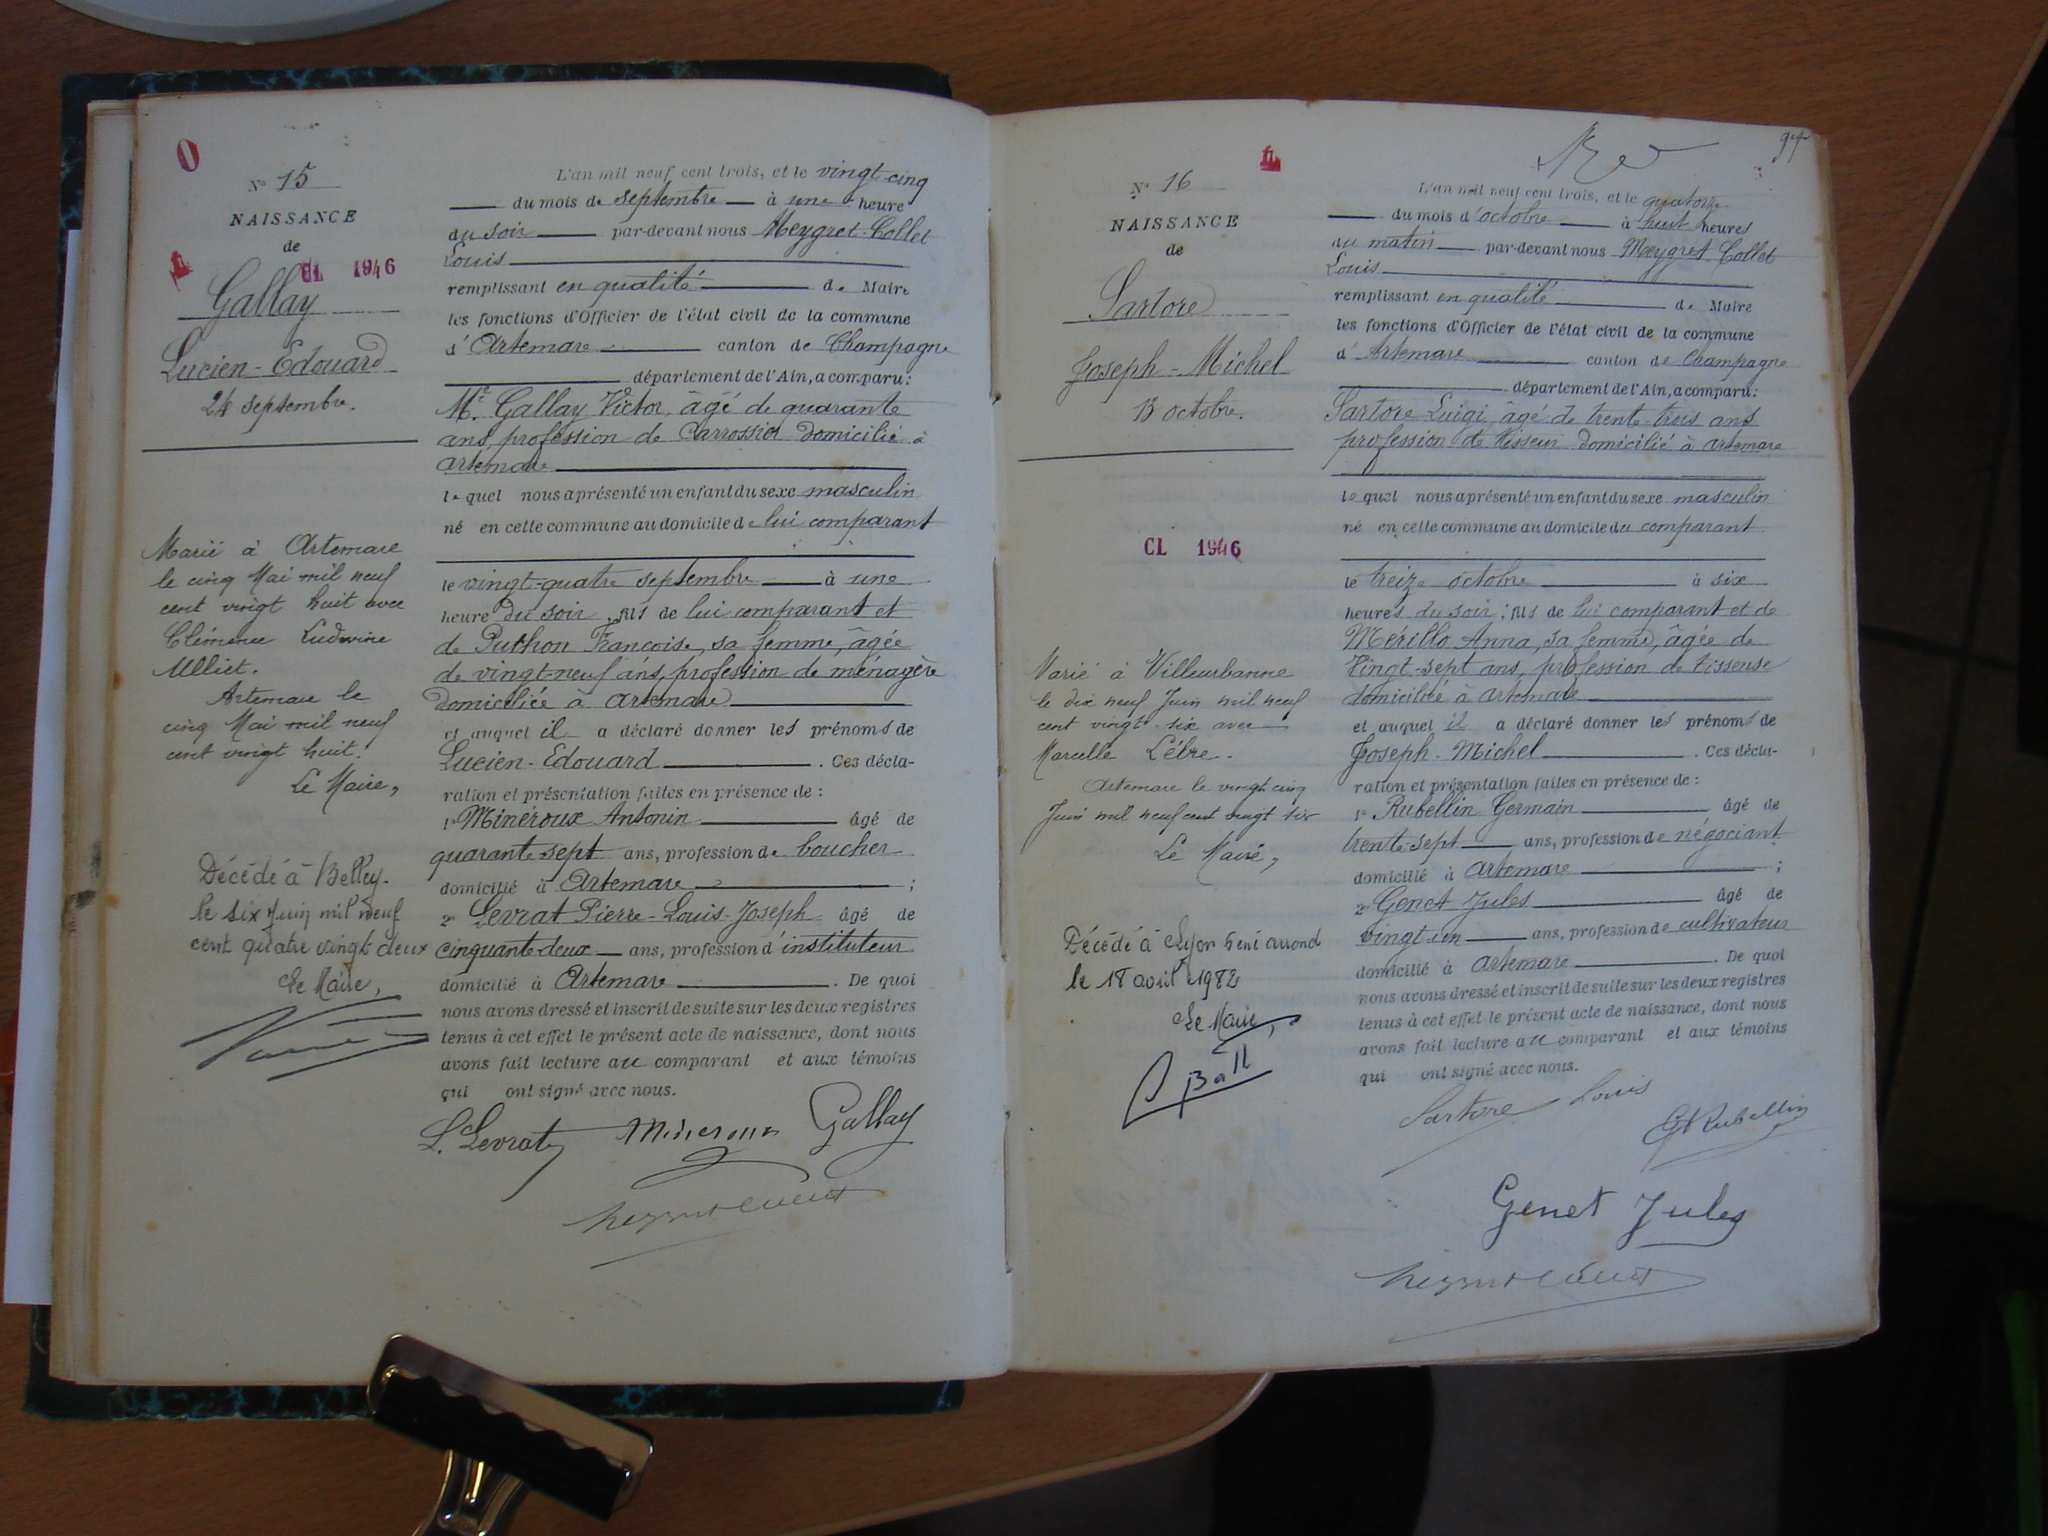 O
N° 15
NAISSANCE
de
CL 1946
Gallay
Lucien-Edouard
24 septembre.
Marié à Artemare
le cinq Mai mil neuf
cent vingt huit avec
Clémence Ludwine
Ulliet.
Artemare le
cinq Mai mil neuf
cent vingt huit.
Le Maire,
Décédé à Belley
le six Juin mil neuf
cent quatre vingt deux
Le Maire,
L'an mil neuf cent trois, et le vingt-cinq
du mois de septembre à une heure
du soir par-devant nous Meygret-Collet
Louis
remplissant en qualité de Maire
les fonctions d'Officier de l'état civil de la commune
d'Artemare canton de Champagne
département de l'Ain, a comparu:
Mr. Gallay Victor, âgé de quarante
ans, profession de Carrossier domicilié à
artemare
lequel nous a présenté un enfant du sexe masculin
né en cette commune au domicile de lui comparant
le vingt-quatre septembre à une
heure du soir; fils de lui comparant et
de Puthon Françoise, sa femme, âgée
de vingt-neuf ans, profession de ménagère
domiciliée à artemare
et auquel il a déclaré donner les prénoms de
Lucien-Edouard. Ces décla-
ration et présentation faites en présence de:
1° Minéroux Antonin âgé de
quarante sept ans, profession de boucher
domicilié à Artemare;
2° Levrat Pierre-Louis-Joseph âgé de
cinquante-deux ans, profession d'instituteur
domicilié à Artemare. De quoi
nous avons dressé et inscrit de suite sur les deux registres
tenus à cet effet le présent acte de naissance, dont nous
avons fait lecture au comparant et aux témoins
qui ont signé avec nous.
L. Levrat Minéroux Gallay
N° 16
NAISSANCE
de
Sartore
Joseph-Michel
13 octobre.
CL 1946
Marié à Villeurbanne
le dix neuf Juin mil neuf
cent vingt-six avec
Marcelle Lèbre.
Artemare le vingt cinq
Juin mil neuf cent vingt six
Le Maire,
Décédé à Lyon arrond
le 18 avril 1982
Le Maire,
97
L'an mil neuf cent trois, et le quatorze
du mois d'octobre à huit heures
du matin par-devant nous Meygret Collet
Louis
remplissant en qualité de Maire
les fonctions d'Officier de l'état civil de la commune
d'Artemare canton de Champagne
département de l'Ain, a comparu:
Sartore Luigi, âgé de trente-trois ans
profession de domicilié à artemare
lequel nous a présenté un enfant du sexe masculin
né en cette commune au domicile du comparant
le treize octobre à six
heures du soir; fils de lui comparant et de
Merillo Anna, sa femme, âgée de
vingt-sept ans, profession de tisseuse
domiciliée à artemare
et auquel il a déclaré donner les prénoms de
Joseph-Michel. Ces décla-
ration et présentation faites en présence de:
1° Rubellin Germain âgé de
trente sept ans, profession de négociant
domicilié à artemare;
2° Genet Jules âgé de
vingt-un ans, profession de cultivateur
domicilié à artemare. De quoi
nous avons dressé et inscrit de suite sur les deux registres
tenus à cet effet le présent acte de naissance, dont nous
avons fait lecture au comparant et aux témoins
qui ont signé avec nous.
Sartore Louis
G Rubellin
Genet Jules